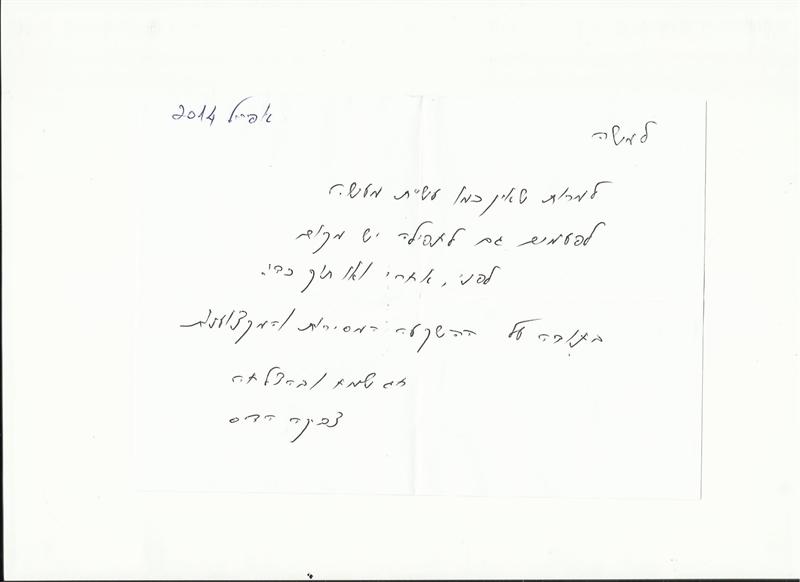 אפריל 2014
למשה
למרות שאין כמו עשית מעשה
לפעמים גם לתפילה יש מקום
לפני, אחרי ואו תוך כדי.
בתודה על ההשקעה המסירות והמקצועיות
חג שמח ובהצלחה
צביקה הדס